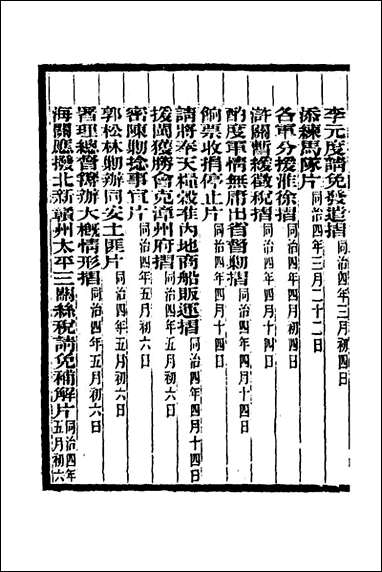 李元度請免發遣摺同治四年三月二十二日
添練馬隊片同治四年三月二十二日
各軍分援淮徐摺同治四年四月初四日
滸關暫緩徵稅摺同治四年四月十四日
酌度軍情無庸出省督勦摺同治四年四月十四日
餉票收捐停止片同治四年四月十四日
請將奉天糧穀准內地商船販運摺同治四年四月十四日
援閩獲勝會克漳州府摺同治四年五月初六日
密陳勦捻事宜片同治四年五月初六日
郭松林勦辦同安土匪片同治四年五月初六日
署理總督籌辦大概情形摺同治四年五月初六日
海關應撥北新贛州太平三關絲稅請免補解片同治四年五月初六